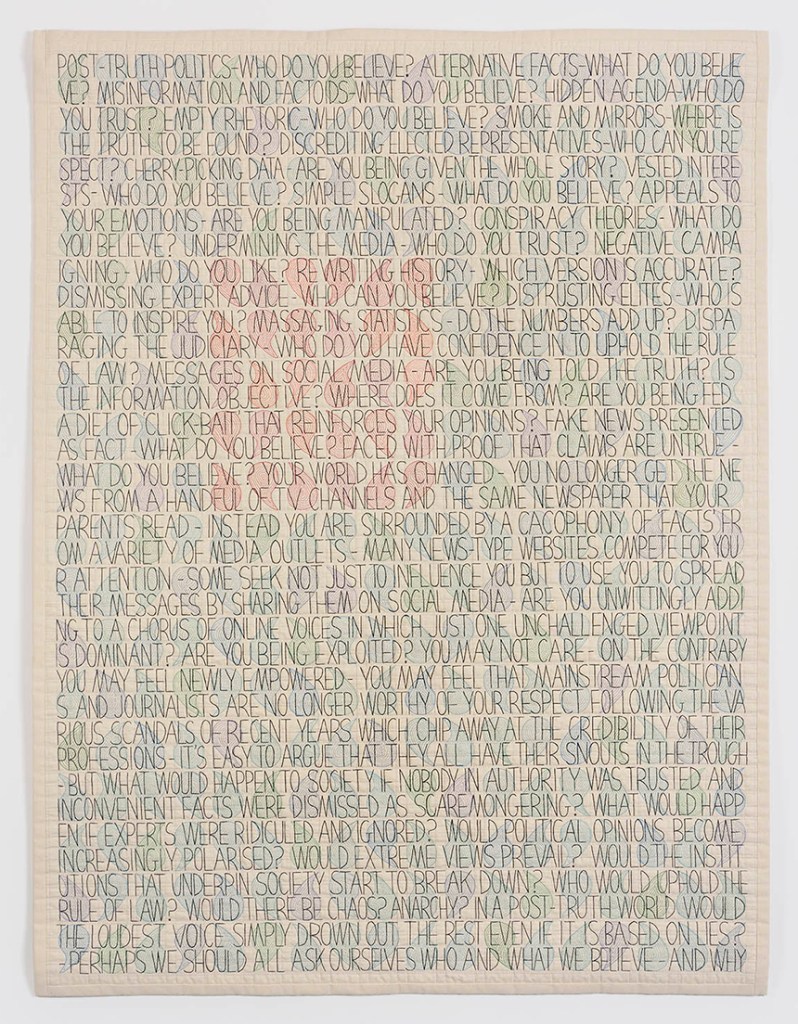 POST-TRUTH POLITICS-WHO DO YOU BELIEVE? ALTERNATIVE FACTS-WHAT DO YOU BELIE
VE? MISINFORMATION AND FACTOIDS-WHAT DO YOU BELIEVE? HIDDEN AGENDA-WHO DO
YOU TRUST? EMPTY RHETORIC-WHO DO YOU BELIEVE? SMOKE AND MIRRORS-WHERE IS
THE TRUTH TO BE FOUND? DISCREDITING ELECTED REPRESENTATIVES-WHO CAN YOU RE
SPECT? CHERRY-PICKING DATA-ARE YOU BEING GIVEN THE WHOLE STORY? VESTED INTERE
STS-WHO DO YOU BELIEVE? SIMPLE SLOGANS-WHAT DO YOU BELIEVE? APPEALS TO
YOUR EMOTIONS-ARE YOU BEING MANIPULATED? CONSPIRACY THEORIES-WHAT DO
YOU BELIEVE? UNDERMINING THE MEDIA-WHO DO YOU TRUST? NEGATIVE CAMPA
IGNING-WHO DO YOU LIKE? REWRITING HISTORY-WHICH VERSION IS ACCURATE?
DISMISSING EXPERT ADVICE-WHO CAN YOU BELIEVE? DISTRUSTING ELITES-WHO IS
ABLE TO INSPIRE YOU? MASSAGING STATISTICS-DO THE NUMBERS ADD UP? DISPA
RAGING THE JUDICIARY-WHO DO YOU HAVE CONFIDENCE IN TO UPHOLD THE RULE
OF LAW? MESSAGES ON SOCIAL MEDIA-ARE YOU BEING TOLD THE TRUTH? IS
THE INFORMATION OBJECTIVE? WHERE DOES IT COME FROM? ARE YOU BEING FED
A DIET OF CLICK-BAIT THAT REINFORCES YOUR OPINIONS? FAKE NEWS PRESENTED
AS FACT-WHAT DO YOU BELIEVE? FACED WITH PROOF THAT CLAIMS ARE UNTRUE
WHAT DO YOU BELIEVE? YOUR WORLD HAS CHANGED-YOU NO LONGER GET THE NE
WS FROM A HANDFUL OF TV CHANNELS AND THE SAME NEWSPAPER THAT YOUR
PARENTS READ-INSTEAD YOU ARE SURROUNDED BY A CACOPHONY OF 'FACTS' FR
OM A VARIETY OF MEDIA OUTLETS-MANY NEWS-TYPE WEBSITES COMPETE FOR YOU
R ATTENTION-SOME SEEK NOT JUST TO INFLUENCE YOU BUT TO USE YOU TO SPREAD
THEIR MESSAGES BY SHARING THEM ON SOCIAL MEDIA-ARE YOU UNWITTINGLY ADDI
NG TO A CHORUS OF ONLINE VOICES IN WHICH JUST ONE UNCHALLENGED VIEWPOINT
IS DOMINANT? ARE YOU BEING EXPLOITED? YOU MAY NOT CARE-ON THE CONTRARY
YOU MAY FEEL NEWLY EMPOWERED-YOU MAY FEEL THAT MAINSTREAM POLITICIAN
S AND JOURNALISTS ARE NO LONGER WORTHY OF YOUR RESPECT FOLLOWING THE VA
RIOUS SCANDALS OF RECENT YEARS WHICH CHIP AWAY AT THE CREDIBILITY OF THEIR
PROFESSIONS-IT'S EASY TO ARGUE THAT THEY ALL HAVE THEIR SNOUTS IN THE TROUGH
-BUT WHAT WOULD HAPPEN TO SOCIETY IF NOBODY IN AUTHORITY WAS TRUSTED AND
INCONVENIENT FACTS WERE DISMISSED AS SCAREMONGERING? WHAT WOULD HAPP
EN IF EXPERTS WERE RIDICULED AND IGNORED? WOULD POLITICAL OPINIONS BECOME
INCREASINGLY POLARISED? WOULD EXTREME VIEWS PREVAIL? WOULD THE INSTIT
UTIONS THAT UNDERPIN SOCIETY START TO BREAK DOWN? WHO WOULD UPHOLD THE
RULE OF LAW? WOULD THERE BE CHAOS? ANARCHY? IN A POST-TRUTH WORLD WOULD
THE LOUDEST VOICE SIMPLY DROWN OUT THE REST EVEN IF IT IS BASED ON LIES?
-PERHAPS WE SHOULD ALL ASK OURSELVES WHO AND WHAT WE BELIEVE-AND WHY